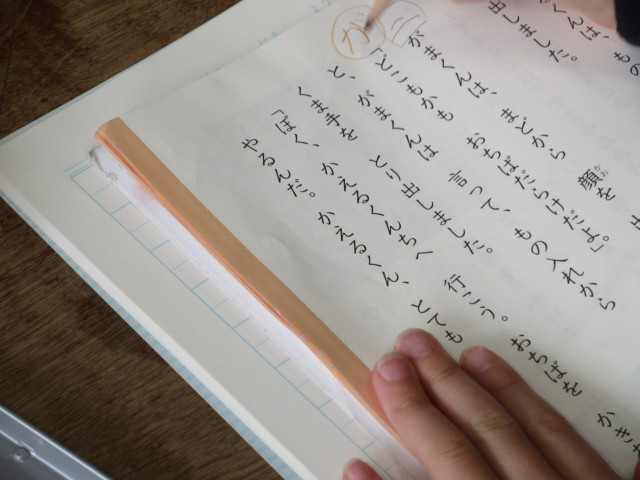 くんは、 もの
出しました。
がまくんは、 まどから 顔を 出
かお
「どこもかも おちばだらけだよ。」
と、 がまくんは 言って、 もの入れから
くま手を とり出しました。
「ぼく、 かえるくんちへ 行こう。 おちばを かき
やるんだ。 かえるくん、 とても
二
が